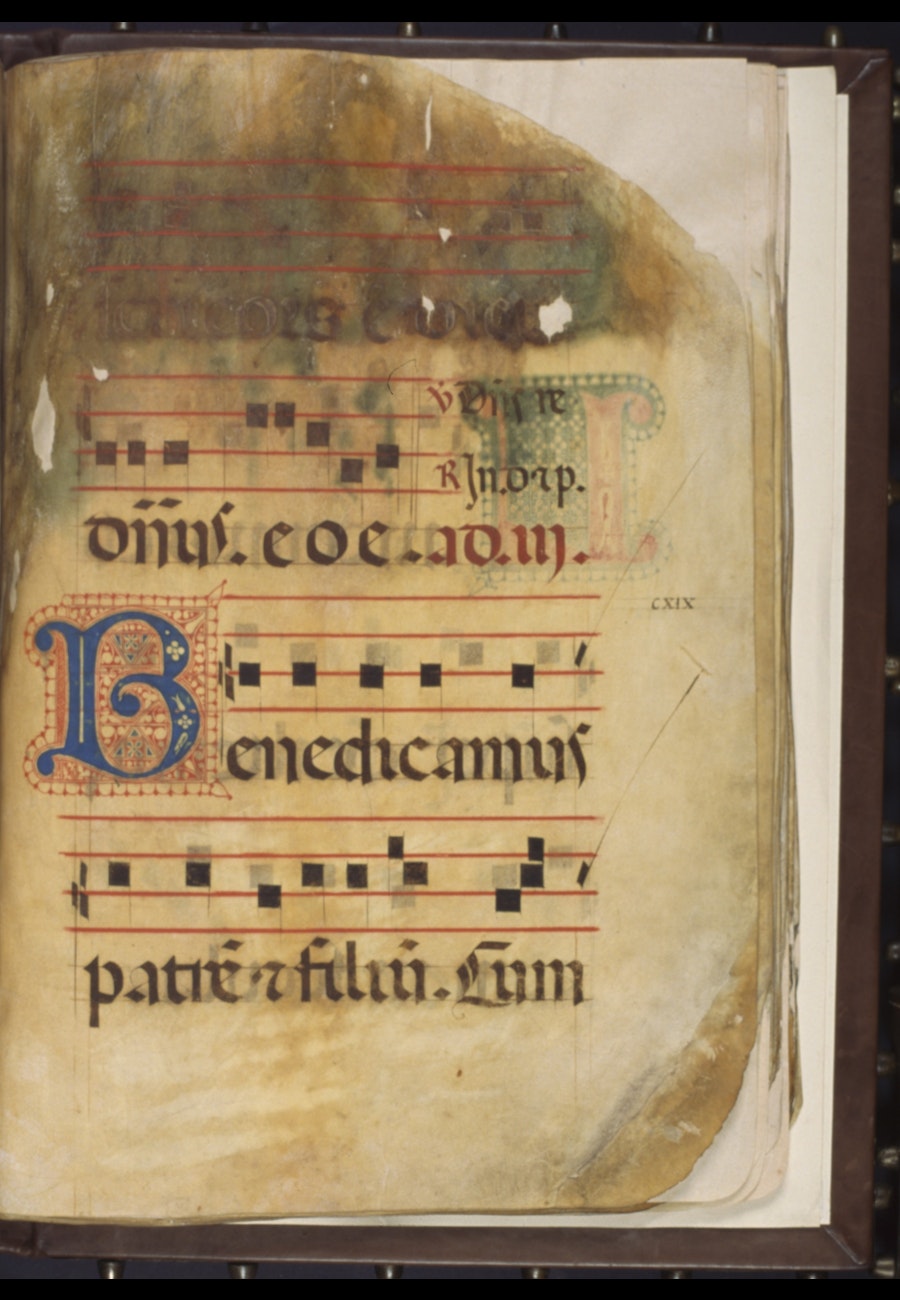 V Dn̄s re
R Jn. orp.
dn̄us. e o e. ad. iij.
cxix
Benedicamus
patrē ⁊ filiū. Cum